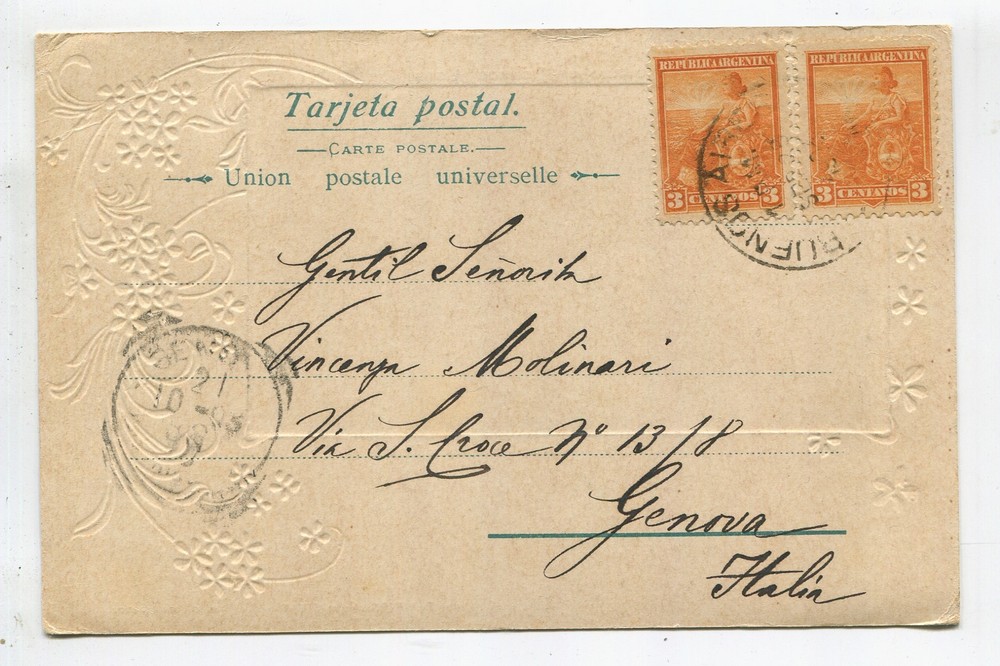 Tarjeta postal.
CARTE POSTALE.
Union postale universelle
REPÚBLICA ARGENTINA
3 CENTAVOS 3
REPÚBLICA ARGENTINA
3 CENTAVOS 3
BUENOS AIRES
Gentil Señorita
Vincenza Molinari
Via S. Croce Nº 13/8
Genova
Italia
21
10-03